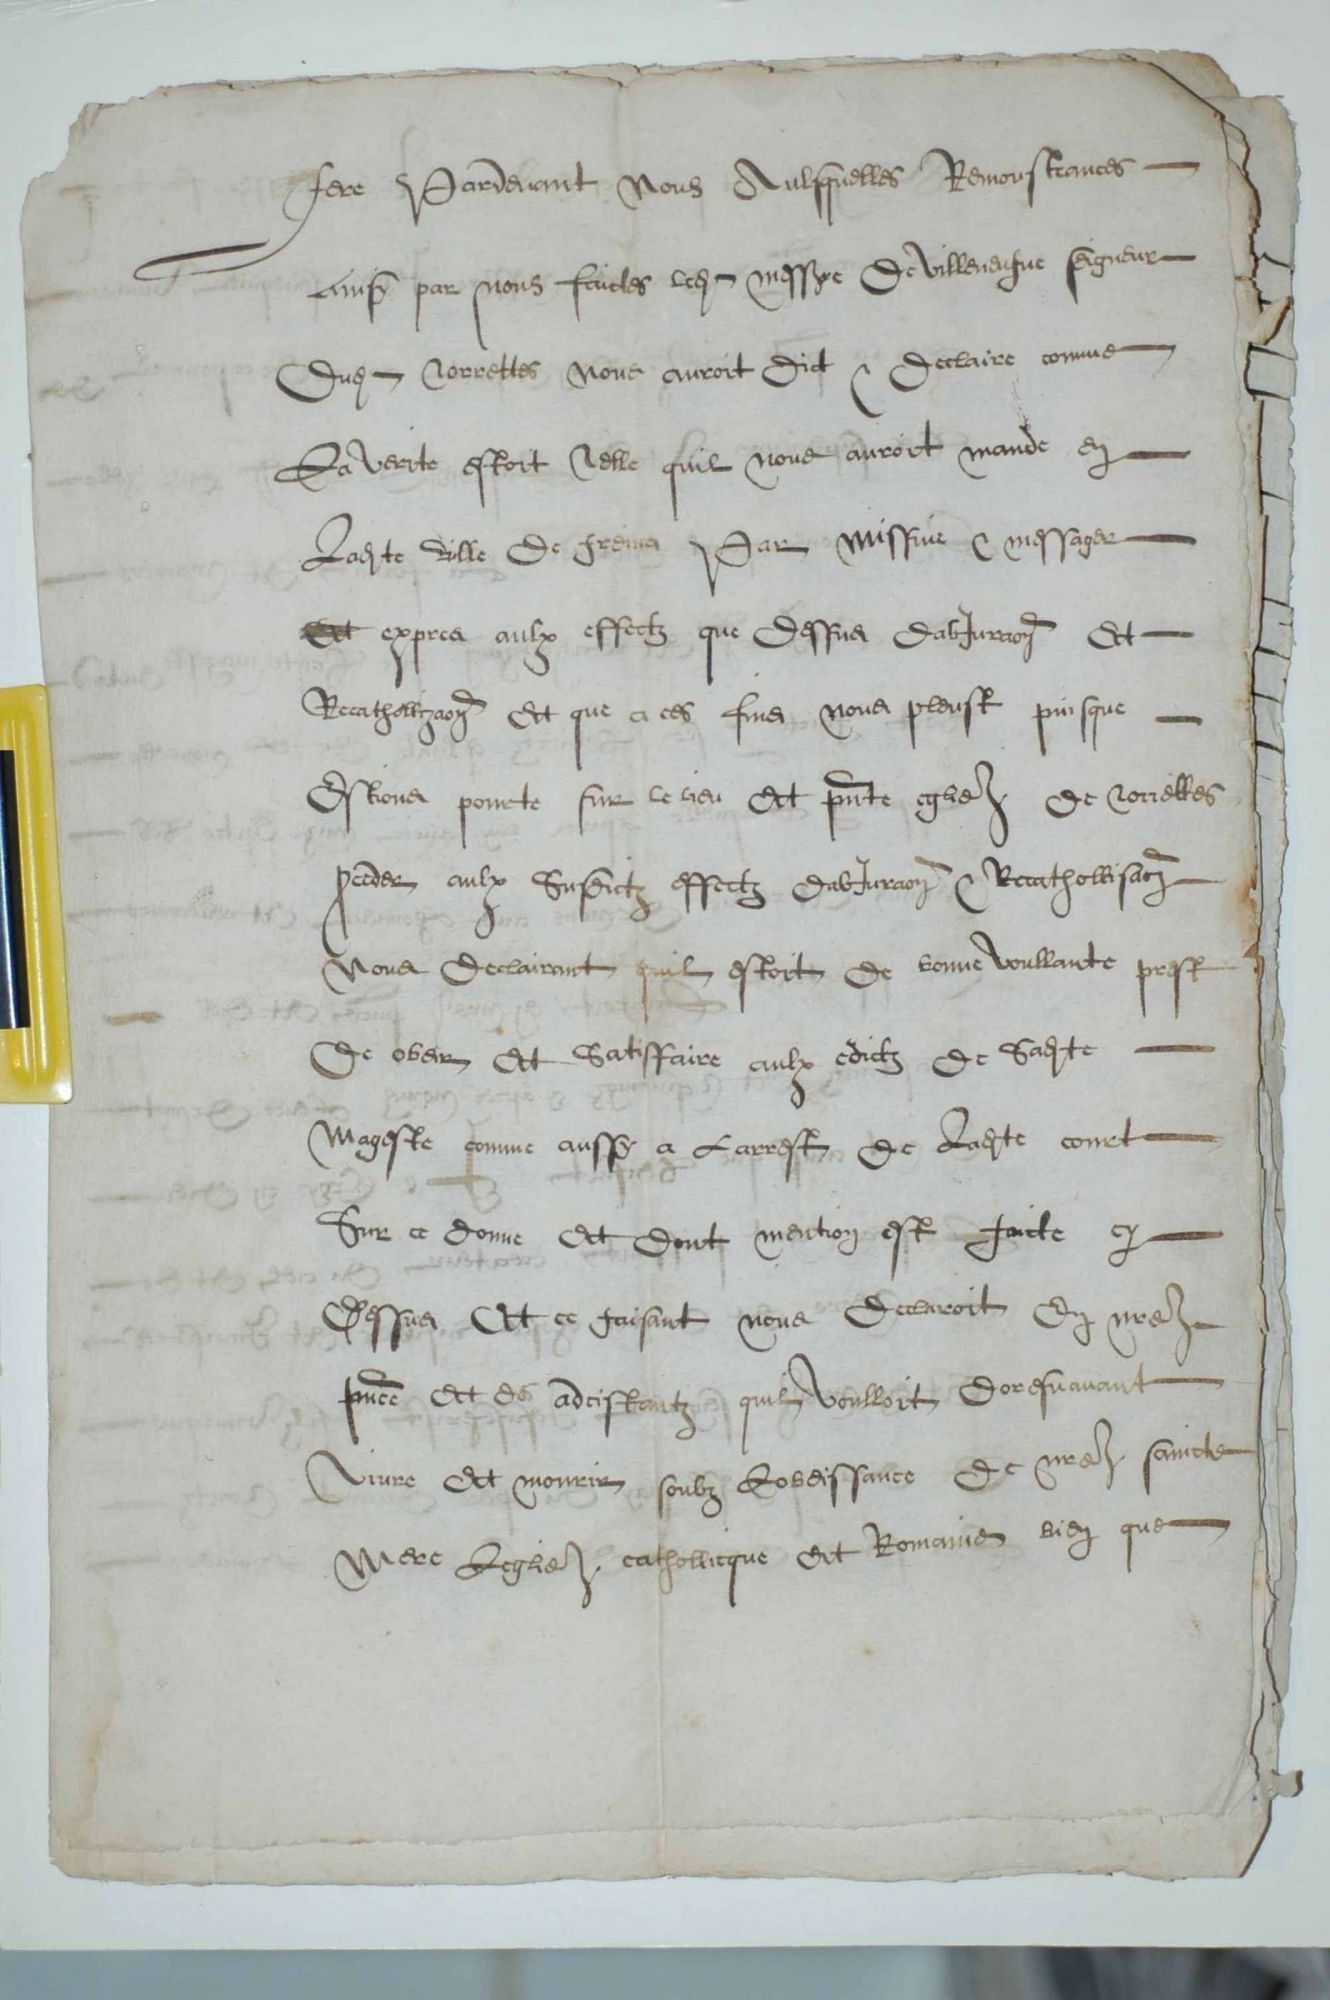 fere Pardevant Nous Aulsquelles Remonstrances
ainsy par nous faictes led messyre De Villeneufve seigneur
Dud Torrettes nous auroit dict & declaire comme
La verite estoit telle quil nous auroit mande en
Ladte ville De frejus Par missive & messager
expres aulx effectz que dessus dabjuraon Et
Recathollizaon Et que a ces fins nous pleust puisque
Estions pourte sur le lieu Et pnte eglise De Torrettes
proceder aulx susdictz effectz dabjuraon & Recathollisaon
Nous declairant quil estoit de bonne voullante prest
De obeir Et satisffaire aulx edictz de sadte
Mageste comme aussy a Larrest de Ladte court
Sur ce donne Et dont mention est faicte cy
Dessus Et ce faisant nous declairoit En nre
pnce Et des adcistantz quil voulloit doresnavant
Vivre Et mourir soubz Lobeissance de nre saincte
Mere Leglise catholicque Et Romaine bien que